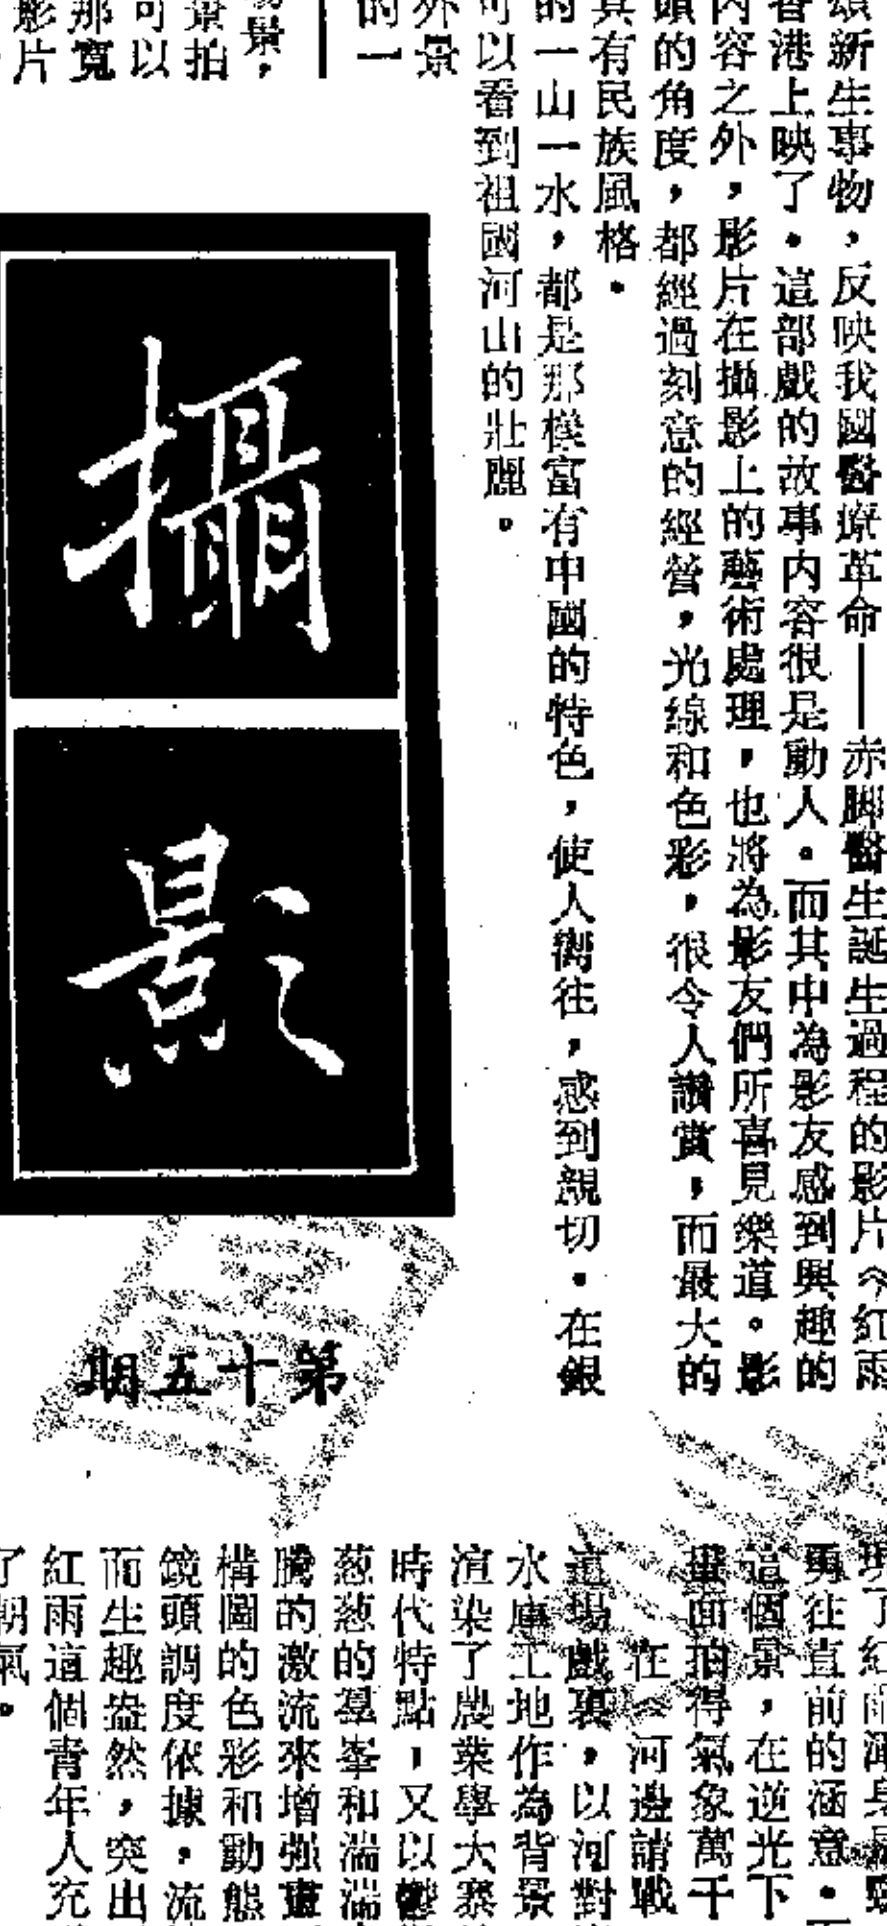 頌新生事物，反映我國醫療革命——赤脚醫生誕生過程的影片《紅雨
香港上映了。這部戲的故事内容很是動人。而其中為影友感到興趣的
内容之外，影片在攝影上的藝術處理，也將為影友們所喜見樂道。影
頭的角度，都經過刻意的經營，光線和色彩，很令人讚賞，而最大的
具有民族風格。
的一山一水，都是那樣富有中國的特色，使人嚮往，感到親切。在銀
可以看到祖國河山的壯麗。
外景
的一
場景，
景拍
可以
那寬
影片
攝影
第十五期
現了紅雨渾身是
勇往直前的涵意。
這個景，在逆光下
畫面拍得氣象萬千
在《河邊請戰
這場戲裏，以河對
水庫工地作為背景
渲染了農業學大寨
時代特點，又以鬱
葱葱的羣峯和湍湍
騰的激流來增强畫
構圖的色彩和動態
鏡頭調度依據，流
而生趣盎然，突出
紅雨這個青年人充
了朝氣。